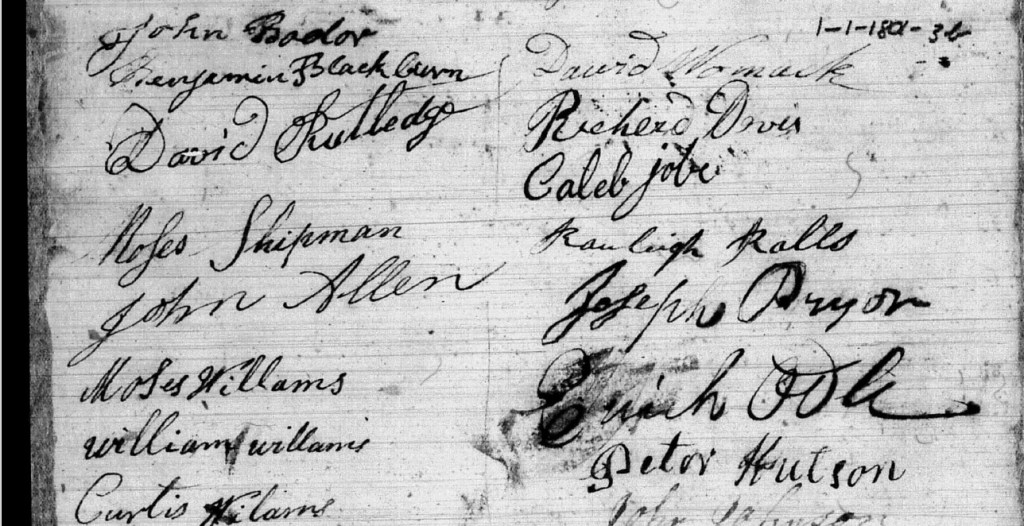 1-1-1801-3b
John Bodor
Benjamin Blackburn
David Rutledge
Moses Shipman
John Allen
Moses Willams
william willams
Curtis Wilams
David Womack
Richerd Davis
Caleb jobe
Rauleigh Ralls
Joseph Pryor
Odle
Petor Hutson
John Johnson